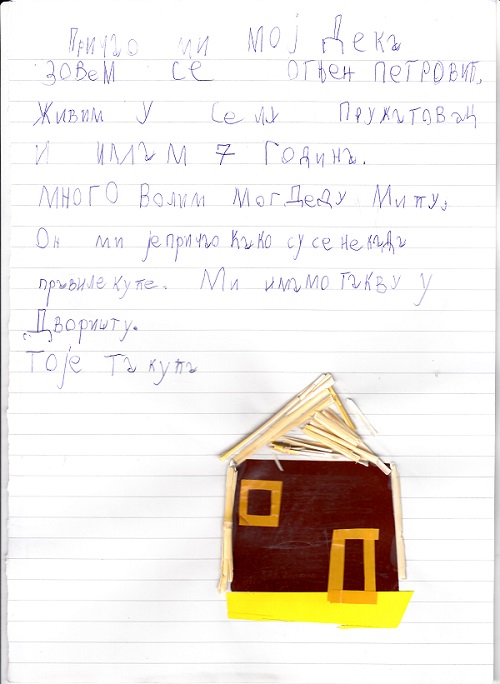 Причо ми мој Дека
Зовем се Огњен Петровић,
Живим у Селу Пружатовац
и имам 7 Година.
Много волим Мог Деду Мићу,
Он ми је причо како су се некада
правиле куће. Ми имамо такву у
Дворишту.
То је та кућа